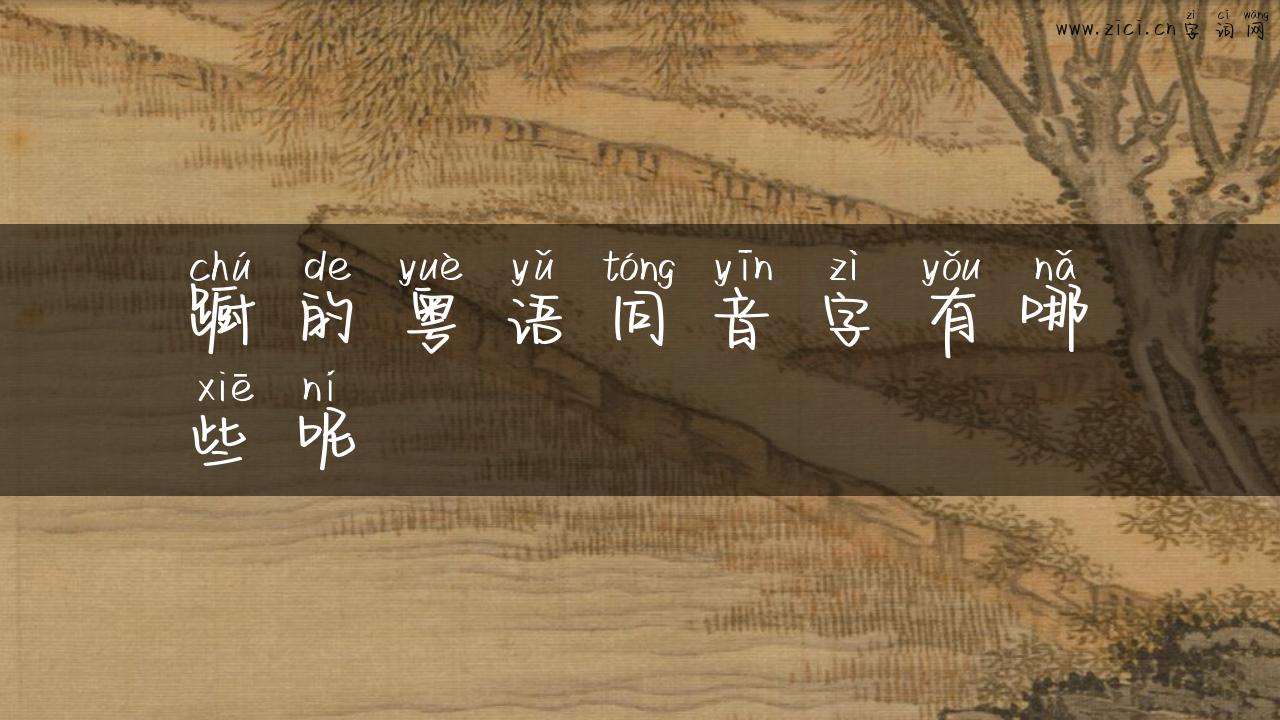 zì cí wǎng
www.zici.cn字词网
chú de yuè yǔ tóng yīn zì yǒu nǎ
蹰的粤语同音字有哪
xiē ní
些呢